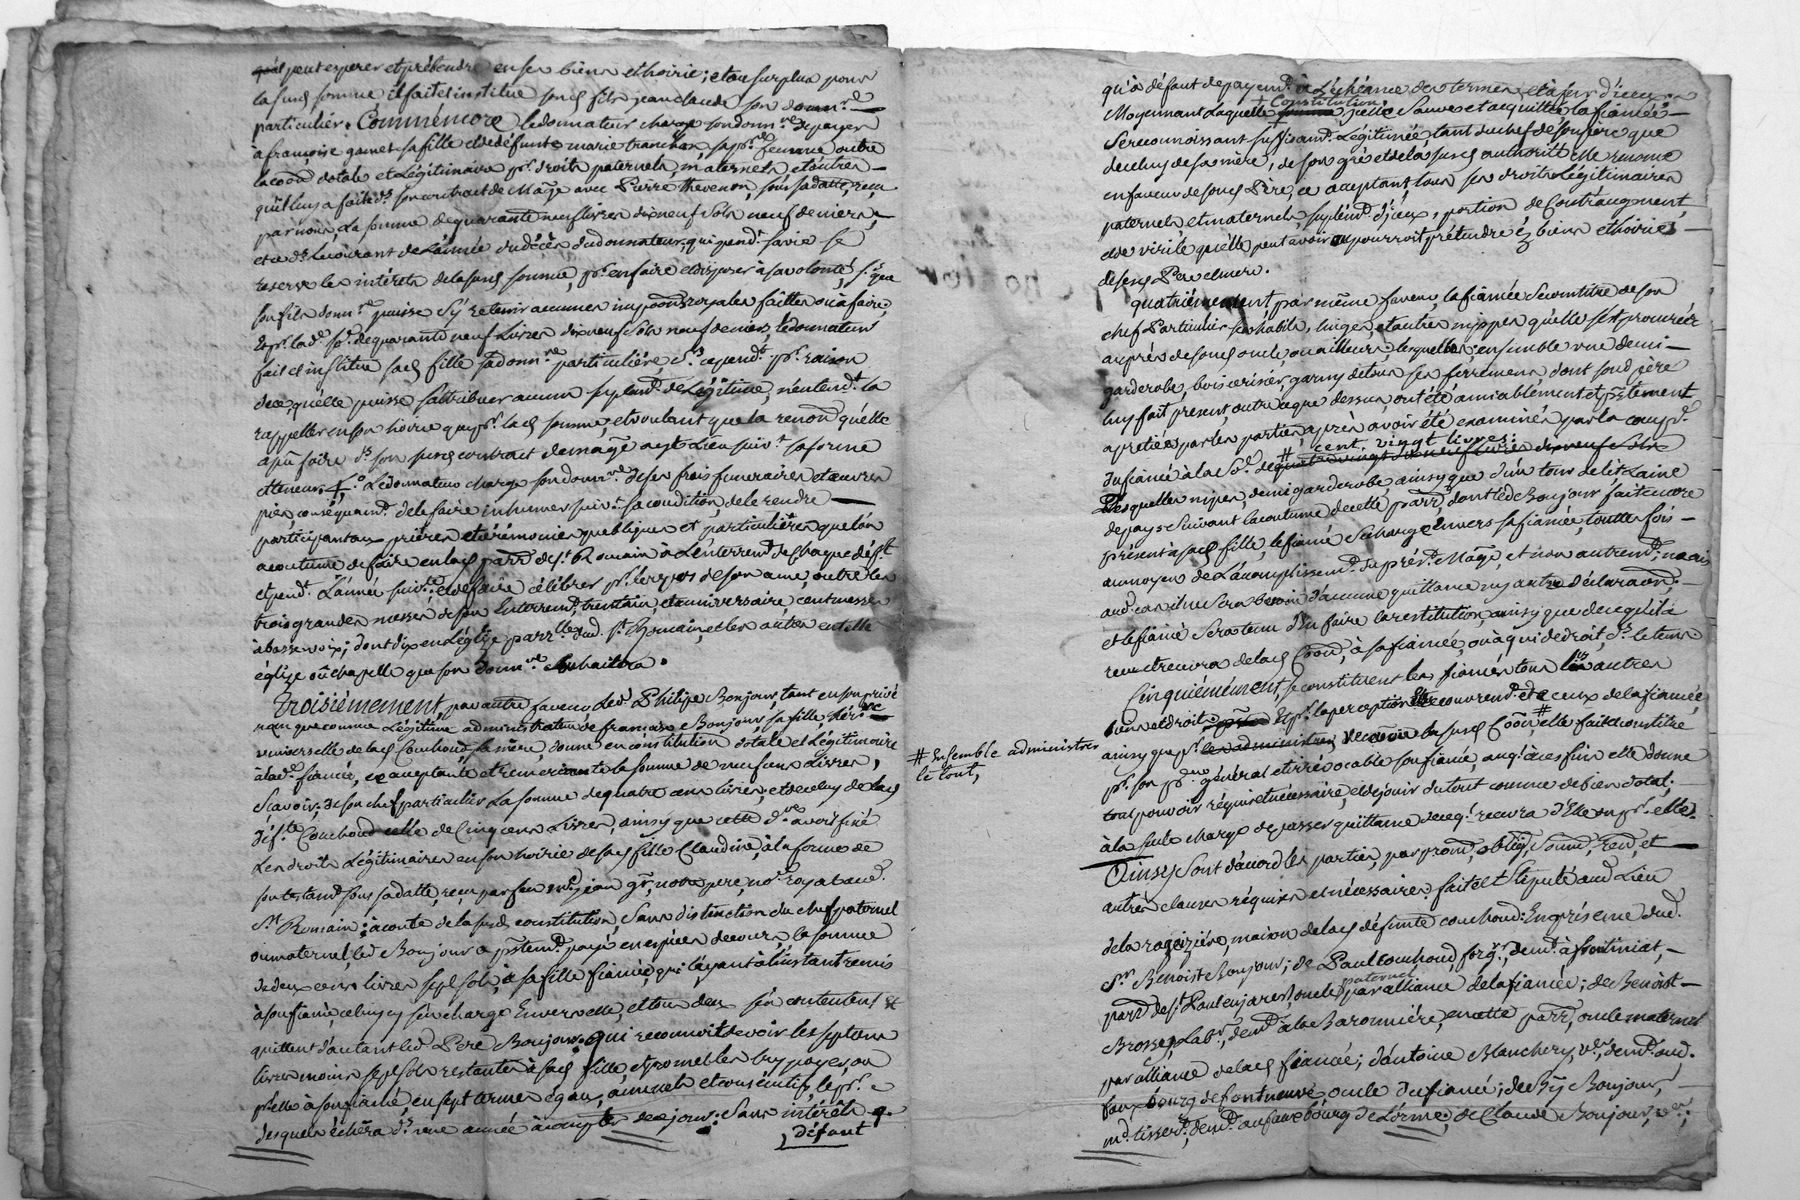 peut esperer et prétendre en ses biens et hoirie; et au surplus pour
la susd somme il fait et institue sond fils jean claude son donn.re
particulier. Commémore le donnateur charge son donn.re de payer
à françoise gamet sa fille et de défunte marie tranchan sa pr. femme outre
la coon dotale et Légitimaire pr. droits paternels, maternels, et autres
qu'il luy a faite ds. son contrat de Mâge avec Pierre Thevenon, sous sa datte, reçu
par nous, La somme de quarante neuf livres dixneuf Sols neuf deniers,
et ce ds. Le courant de L'année du décès dud donnateur, qui pend.t sa vie se
reserve les intérêts de la susd somme, pr. en faire et disposer à sa volonté, s. que
son fils donn.re puisse s'y retenir aucunes impoons royales faittes ou à faire;
Et pr. lad. s. de quarante neuf Livres dixneuf Sols neuf deniers, le donnateur
fait et institue sad fille sa donn.re particulière, s. cepend.t pr. raison
de ce, qu'elle puisse s'attribuer aucun suplem.t de Légitime, n'entend.t la
rappeller en son hoirie que pr. lad somme, et voulant que la renon qu'elle
a pu faire ds. son susd contrat de mâge ayt Lieu suiv.t sa forme
et teneur. Le donnateur charge son donn.re de ses frais funeraires et œuvres
pies, conséquam.t de le faire inhumer suiv.t sa condition, de le rendre
participant aux prières et cérémonies publiques et particulières que l'on
a coutume de faire en lad parr. de S.t Romain à L'enterrem.t de chaque déf.t
et pend.t L'année suiv.te, et de faire célébrer pr. le repos de son ame, outre les
trois grandes messes de son Enterrem.t, trentain, et anniversaire, cent messes
à basse voix; dont dix en L'église parr.lle dud. S.t Romain, et les autres en telle
église ou chapelle que son donn.re souhaitera.
Troisièmement, par autre faveur Led. Philipe Bonjour, tant en son privé
nom que comme Légitime administrateur de françoise Bonjour, sa fille hér.re
universelle de lad Couhoud, sa mère, donne en constitution dotale et Légitimaire
à lad. fiancée, ce aceptante et remerciante la somme de neuf cens Livres,
Sçavoir, de son chef particulier La somme de quatre cens livres; et de celuy de lad
déf.te Couhoud celle de Cinq cens Livres, ainsy que cette d.re avoit fixé
Les droits Légitimaires en son hoirie de sad fille Claudine, à la forme de
son testam.t sous sa datte, reçu par feu m.e jean notre pere, no.re royal aud.
S.t Romain; à conte de la susd. constitution, Sans distinction du chef paternel
ou maternel, led Bonjour a pr̄stem.t payé en espèces de cours, la somme
de deux cens livres sept sols, à sa fille fiancée, qui l'ayant à l'instant remis
à son fiancé, celuy cy s'en charge Envers elle, et tous deux s'en contentent et
quittent d'autant led. Père Bonjour. Qui reconnoit devoir les sept cens
livres moins sept sols restantes à sad fille, et promet les luy payer, ou
pr. elle à son fiancé, en sept termes égaux, annuels et consécutifs, le pr.
desquels échêra ds. une année à compter de ce jour; Sans intérêts q.
défaut
qu'à défaut de payem.t à L'échéance des termes et à fur d'iceux.
Moyennant Laquelle Constitution, icelle Sauve et acquittée la fiancée
Se reconnoissant suffisam.t Légitimée, tant du chef de son père que
de celuy de sa mère, de son gré et de la susd authorité Elle renonce
en faveur de sond Père, ce aceptant, tous ses droits Légitimaires
paternels, et maternels, suplém.t d'iceux, portion de Contr'augment,
et de virile qu'elle peut avoir ou pourroit prétendre éz biens et hoiries
de sesd Père et mere.
Quatrièmement, par même faveur, la fiancée Se constitue de son
chef Particulier, ses habits, linges, et autres nippes qu'elle s'est procurées
auprès de sond oncle, ou ailleurs: lesquelles; ensemble une demi-
garderobe, bois cerisier, garny de tous ses ferremens dont sond père
luy fait présent, outre ce que dessus, ont été amiablement et pr̄stement
apretiées par les parties, après avoir été examinées par la
du fiancé à la So. de # cent vingt livres:
Desquelles nipes, demi garderobe, ainsy que d'un tour de lit Laine
de pays Suivant la coutume de cette parr., dont led Bonjour fait encore
présent à sad fille, le fiancé Se charge Envers sa fiancée, toutte fois
au moyen de L'acomplissem.t du prés.t Mâge, et non autrem.t, mais
aud. cas il ne Sera besoin d'aucune quittance ny autre déclaraon,
et le fiancé Sera tenu d'en faire la restitution ainsy que de ce qu'il a
reçu et recevra de lad Coon, à sa fiancée, ou à qui de droit, ds. le tems.
Cinquièmement, se constituent les fiancés tous leurs autres
biens et droits Et pr. la perception et recouvrem.t de ceux de la fiancée,
ainsy que pr. recevoir la susd Coon, # elle fait et constitue
# Ensemble administrer
le tout,
pr. son pr. général et irrévocable son fiancé, auq.l à ces fins elle donne
tout pouvoir réquis et nécessaire, et de jouir du tout comme de bien dotal,
à la seule charge de passer quittance de ce q. recevra d'Elle ou pr. elle.
Ainsy Sont d'acord les parties, par prom., oblig., Soum., ren., et
autres clauses réquises et nécessaires. fait et Stipulé aud Lieu
de la ragoizière, maison de lad défunte couhoud: En présence dud.
S.r Benoist Bonjour; de Paul couhoud, forg.r, dem.t à fontiniat,
parr. de S.t Paul en jarest, oncle paternel par alliance de la fiancée; de Benoist
Brosse, Lab.r, dem.t à la Baronnière, en cette parr., oncle maternel
par alliance de lad fiancée; d'antoine Blanchery, v.er, dem.t aud.
faux bourg de fontneuve oncle du fiancé; de Bonjour,
m.d tisser.d, dem.t au faux bourg de Lorme; de Claude Bonjour, v.er,